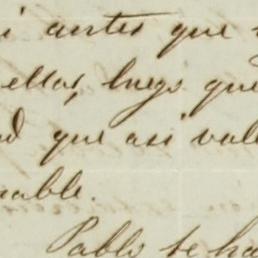 i antes que
ellos, luego que
d que asi val
nable.
Pablo se ha